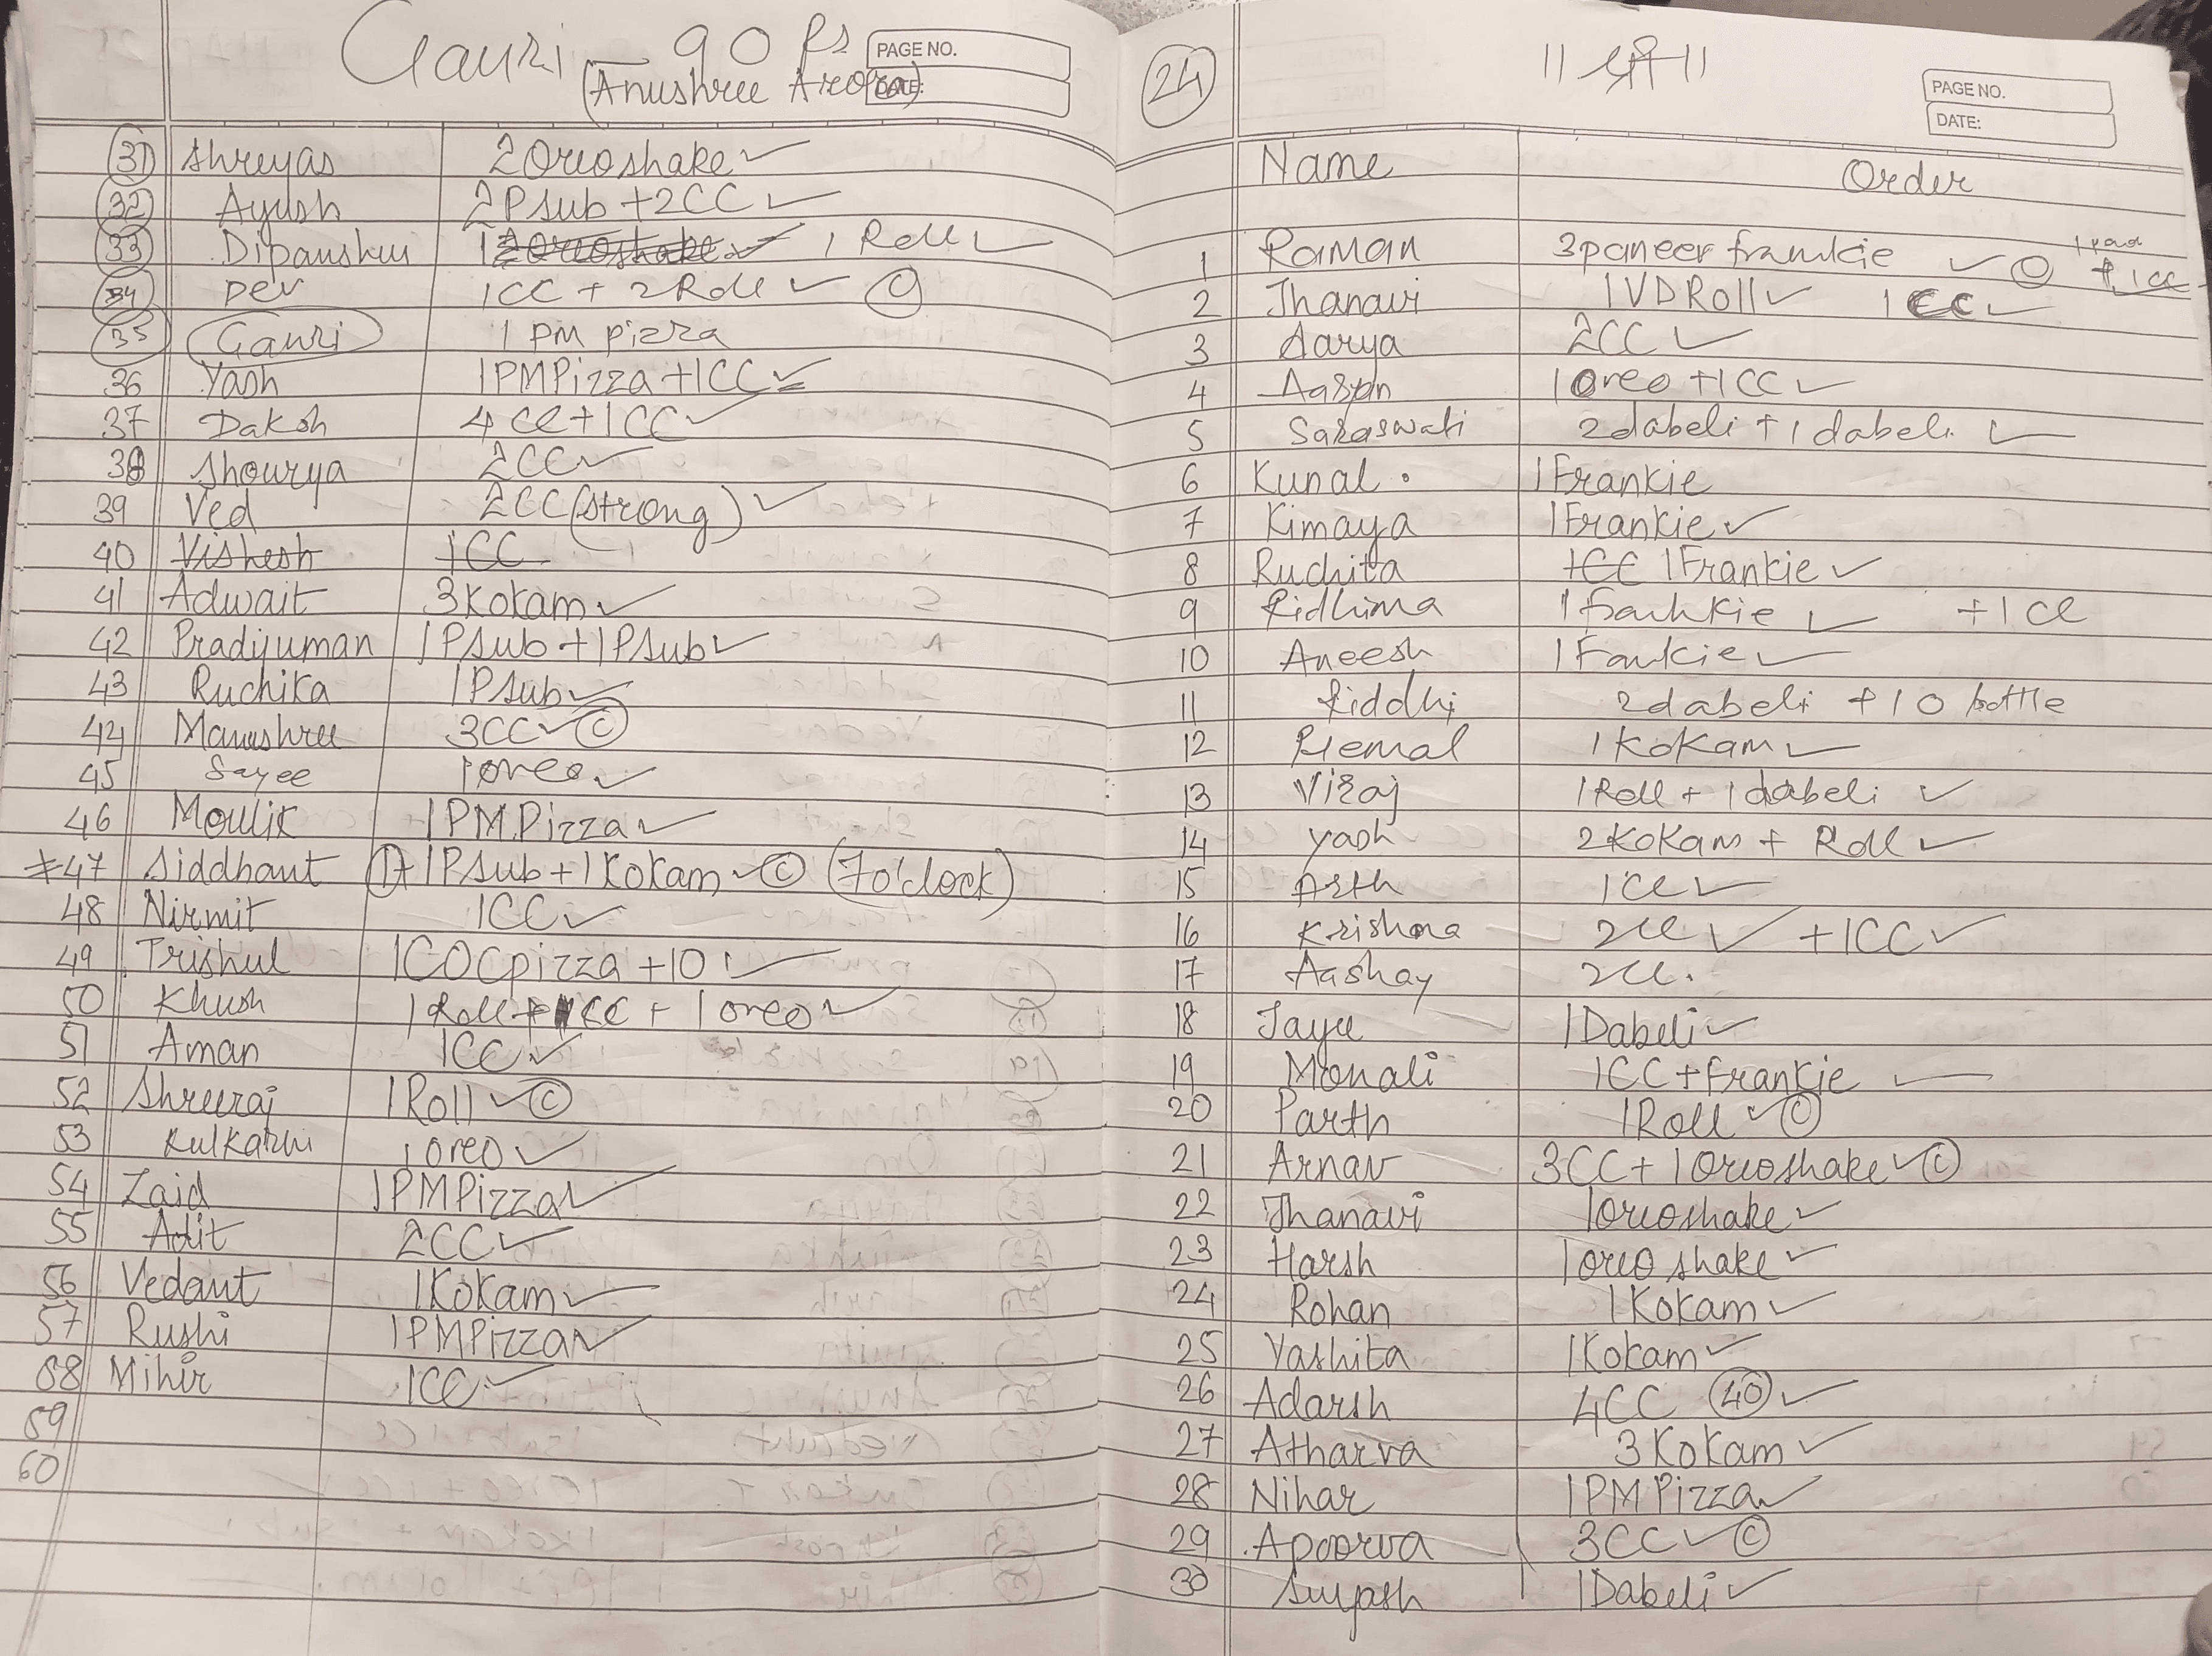 Gauri - 90 Rs
(Anushree Arora)
PAGE NO.
DATE:
31 Shreyas 2 Oreoshake ✓
32 Ayush 2 P Sub + 2CC ✓
33 Dipanshu 1 2 Oreoshake ✓ 1 Roll ✓
34 Dev 1CC + 2 Roll ✓ ©
35 Gauri 1 PM pizza
36 Yash 1PM Pizza + 1CC ✓
37 Daksh 4 CC + 1 CC ✓
38 Shourya 2CC ✓
39 Ved 2CC (strong) ✓
40 Vishesh 1CC
41 Adwait 3 Kokam ✓
42 Pradyuman 1 P Sub + 1 P Sub ✓
43 Ruchika 1 P Sub ✓
44 Manushree 3CC ✓ ©
45 Sayee 1 oreo ✓
46 Moulik 1 P.M. Pizza ✓
*47 Siddhant 1 + 1 P Sub + 1 Kokam ✓ © (7 o'clock)
48 Nirmit 1CC ✓
49 Trishul 1 COC pizza + 10 ✓
50 Khush 1 Roll + 1CC + 1 oreo ✓
51 Aman 1CC ✓
52 Shreeraj 1 Roll ✓ ©
53 Kulkarni 1 oreo ✓
54 Zaid 1PM Pizza ✓
55 Adit 2CC ✓
56 Vedant 1 Kokam ✓
57 Rushi 1PM Pizza ✓
58 Mihir 1CC ✓
59
60
24
|| श्री ||
PAGE NO.
DATE:
Name Order
1 Raman 3 paneer frankie ✓ © + 1 CC
2 Jhanavi 1 VD Roll ✓ 1 CC ✓
3 Aarya 2CC ✓
4 Aaryan 1 Oreo + 1 CC ✓
5 Saraswati 2 dabeli + 1 dabeli ✓
6 Kunal . 1 Frankie
7 Kimaya 1 Frankie ✓
8 Ruchita 1CC 1 Frankie ✓
9 Ridhima 1 frankie ✓ + 1 CC
10 Aneesh 1 Fankie ✓
11 Riddhi 2 dabeli + 1 0 bottle
12 Hemal 1 Kokam ✓
13 Viraj 1 Roll + 1 dabeli ✓
14 Yash 2 Kokam + Roll ✓
15 Arth 1CC ✓
16 Krishna 2CC ✓ + 1CC ✓
17 Aashay 2CC.
18 Jayu 1 Dabeli ✓
19 Monali 1CC + Frankie ✓
20 Parth 1 Roll ✓ ©
21 Arnav 3CC + 1 Oreoshake ✓ ©
22 Jhanavi 1 oreoshake ✓
23 Harsh 1 oreo shake ✓
24 Rohan 1 Kokam ✓
25 Yashita 1 Kokam ✓
26 Adarsh 4CC 40 ✓
27 Atharva 3 Kokam ✓
28 Nihar 1 PM Pizza ✓
29 Apoorva 3CC ✓ ©
30 Suyash 1 Dabeli ✓